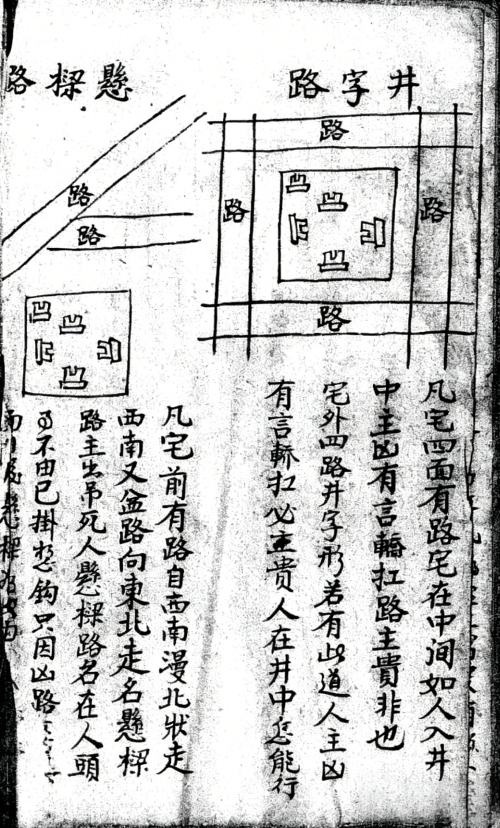 井字路
路
路
路
路
凹
凹
凹
凹
凹
凡宅四面有路宅在中间如人入井
中主凶有言轎扛路主貴非也
宅外四路井字形若有此道人主凶
有言轎扛必主貴人在井中怎能行
懸樑路
路
路
凹
凹
凹
凹
凹
凡宅前有路自西南漫北狀走
西南又岔路向東北走名懸樑
路主出吊死人懸樑路名在人頭
不由己掛鈎只因凶路
懸樑